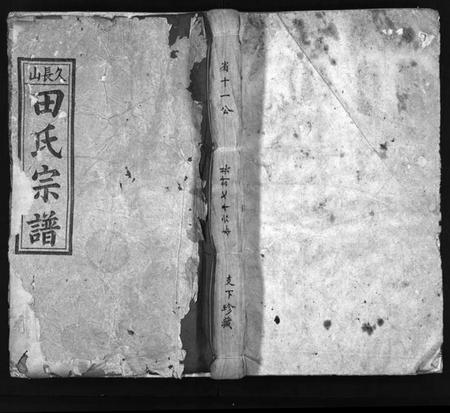 久長山
田氏宗譜
省十一公
支下珍藏